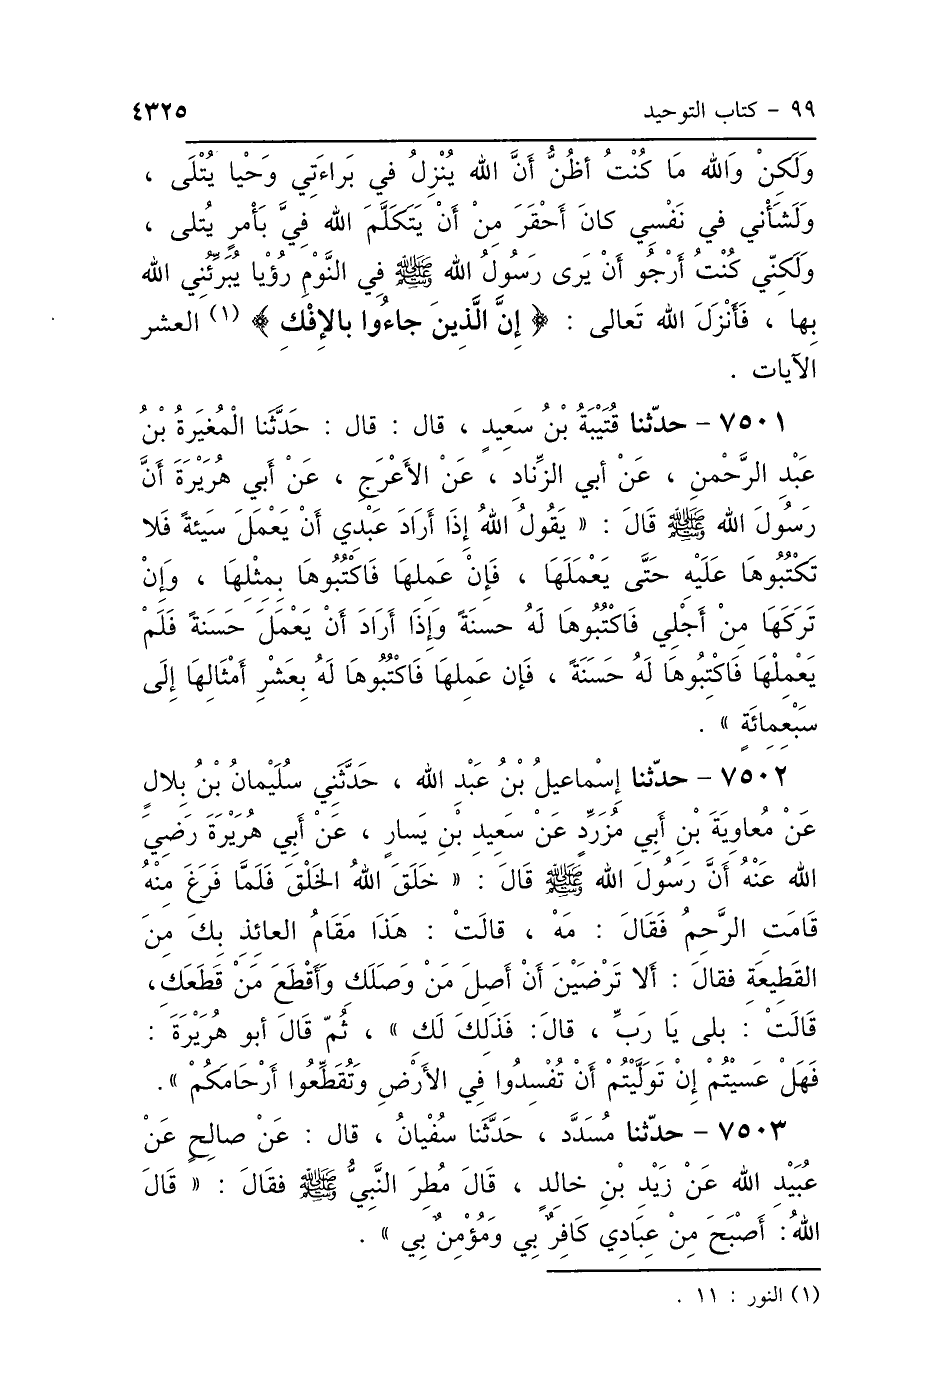 ٩٩ - كتاب التوحيد ٤٣٢٥
وَلَكِنْ وَالله مَا كُنْتُ أظُنُّ أَنَّ الله يُنْزِلُ في بَراءَتي وَحْيا يُتْلَى ،
ولَشَأْني في نَفْسِي كانَ أَحْقَرَ مِنْ أَنْ يَتَكَلَّمَ الله فيَّ بَأْمرٍ يُتلى ،
ولَكنّي كُنْتُ أَرْجُو أَنْ يَرى رَسُولُ الله ﷺ فِي النَّوْمِ رُؤْيا يُبَرِّئُني الله
بِها ، فَأَنْزَلَ الله تَعالى : ﴿ إنَّ الَّذِينَ جاءُوا بالإفْكِ ﴾ (١) العشر
الآيات .
٧٥٠١ - حدّثنا قُتَيْبَةُ بْنُ سَعِيدٍ ، قال : قال : حَدَّثَنا الْمُغيَرةُ بْنُ
عَبْد الرَّحْمنِ ، عَنْ أبي الزِّنادِ ، عَنْ الأَعْرَجِ ، عَنْ أَبي هُرَيْرَةَ أَنَّ
رَسُولَ الله ﷺ قَالَ : « يَقُولُ اللهُ إذَا أَرَادَ عَبْدي أَنْ يَعْمَلَ سَيئةً فَلا
تَكْتُبُوهَا عَلَيْهِ حَتَّى يَعْمَلَهَا ، فَإنْ عَمِلهَا فَاكْتُبُوهَا بِمثْلِهَا ، وَإنْ
تَرَكَهَا مِنْ أَجْلِي فَاكْتُبُوهَا لَهُ حسنَةً وَإذَا أَرَادَ أَنْ يَعْمَلَ حَسَنَةً فَلَمْ
يَعْمِلْهَا فَاكْتِبُوهَا لَهُ حَسَنَةً ، فَإن عَمِلهَا فَاكْتُبُوهَا لَهُ بِعَشْرِ أمْثَالِهَا إلَى
سَبْعِمِائَةٍ » .
٧٥٠٢ - حدّثنا إسْماعيلُ بْنُ عَبْدِ الله ، حَدَّثَني سُلَيْمانُ بْنُ بِلالٍ
عَنْ مُعاوِيَةَ بْنِ أَبي مُزَرِّدٍ عَنْ سَعِيد بْنِ يَسارٍ ، عَنْ أَبي هُرَيْرَةَ رَضيَ
الله عَنْهُ أَنَّ رَسُولَ الله ﷺ قَالَ : « خَلَقَ اللهُ الخَلْقَ فَلَمَّا فَرَغَ مِنْهُ
قَامَت الرَّحِمُ فَقَالَ : مَهْ ، قالَتْ : هَذَا مَقَامُ العائذِ بِكَ مِنَ
القَطِيعَةِ فقالَ : أَلا تَرْضَيْنَ أَنْ أَصِلَ مَنْ وَصَلَكِ وَأَقْطَعَ مَنْ قَطَعَكِ ،
قَالَتْ : بلى يَا رَبِّ ، قالَ : فَذَلكَ لَكِ » ، ثُمّ قَالَ أبو هُرَيْرَةَ :
فَهَلْ عَسيْتُمْ إنْ تَوَلَّيْتُمْ أَنْ تُفْسدُوا فِي الأَرْضِ وَتُقَطِّعُوا أَرْحَامكُمْ » .
٧٥٠٣ - حدّثنا مُسَدَّد ، حَدَّثَنا سُفْيانُ ، قال : عَنْ صالِحٍ عَنْ
عُبَيْدِ الله عَنْ زَيْد بْنِ خالِدٍ ، قَالَ مُطِرَ النَّبيُّ ﷺ فقَالَ : « قَالَ
اللهُ : أَصْبَحَ مِنْ عِبَادِي كَافِرٌ بِي وَمُؤْمِنٌ بِي » .
(١) النور : ١١ .